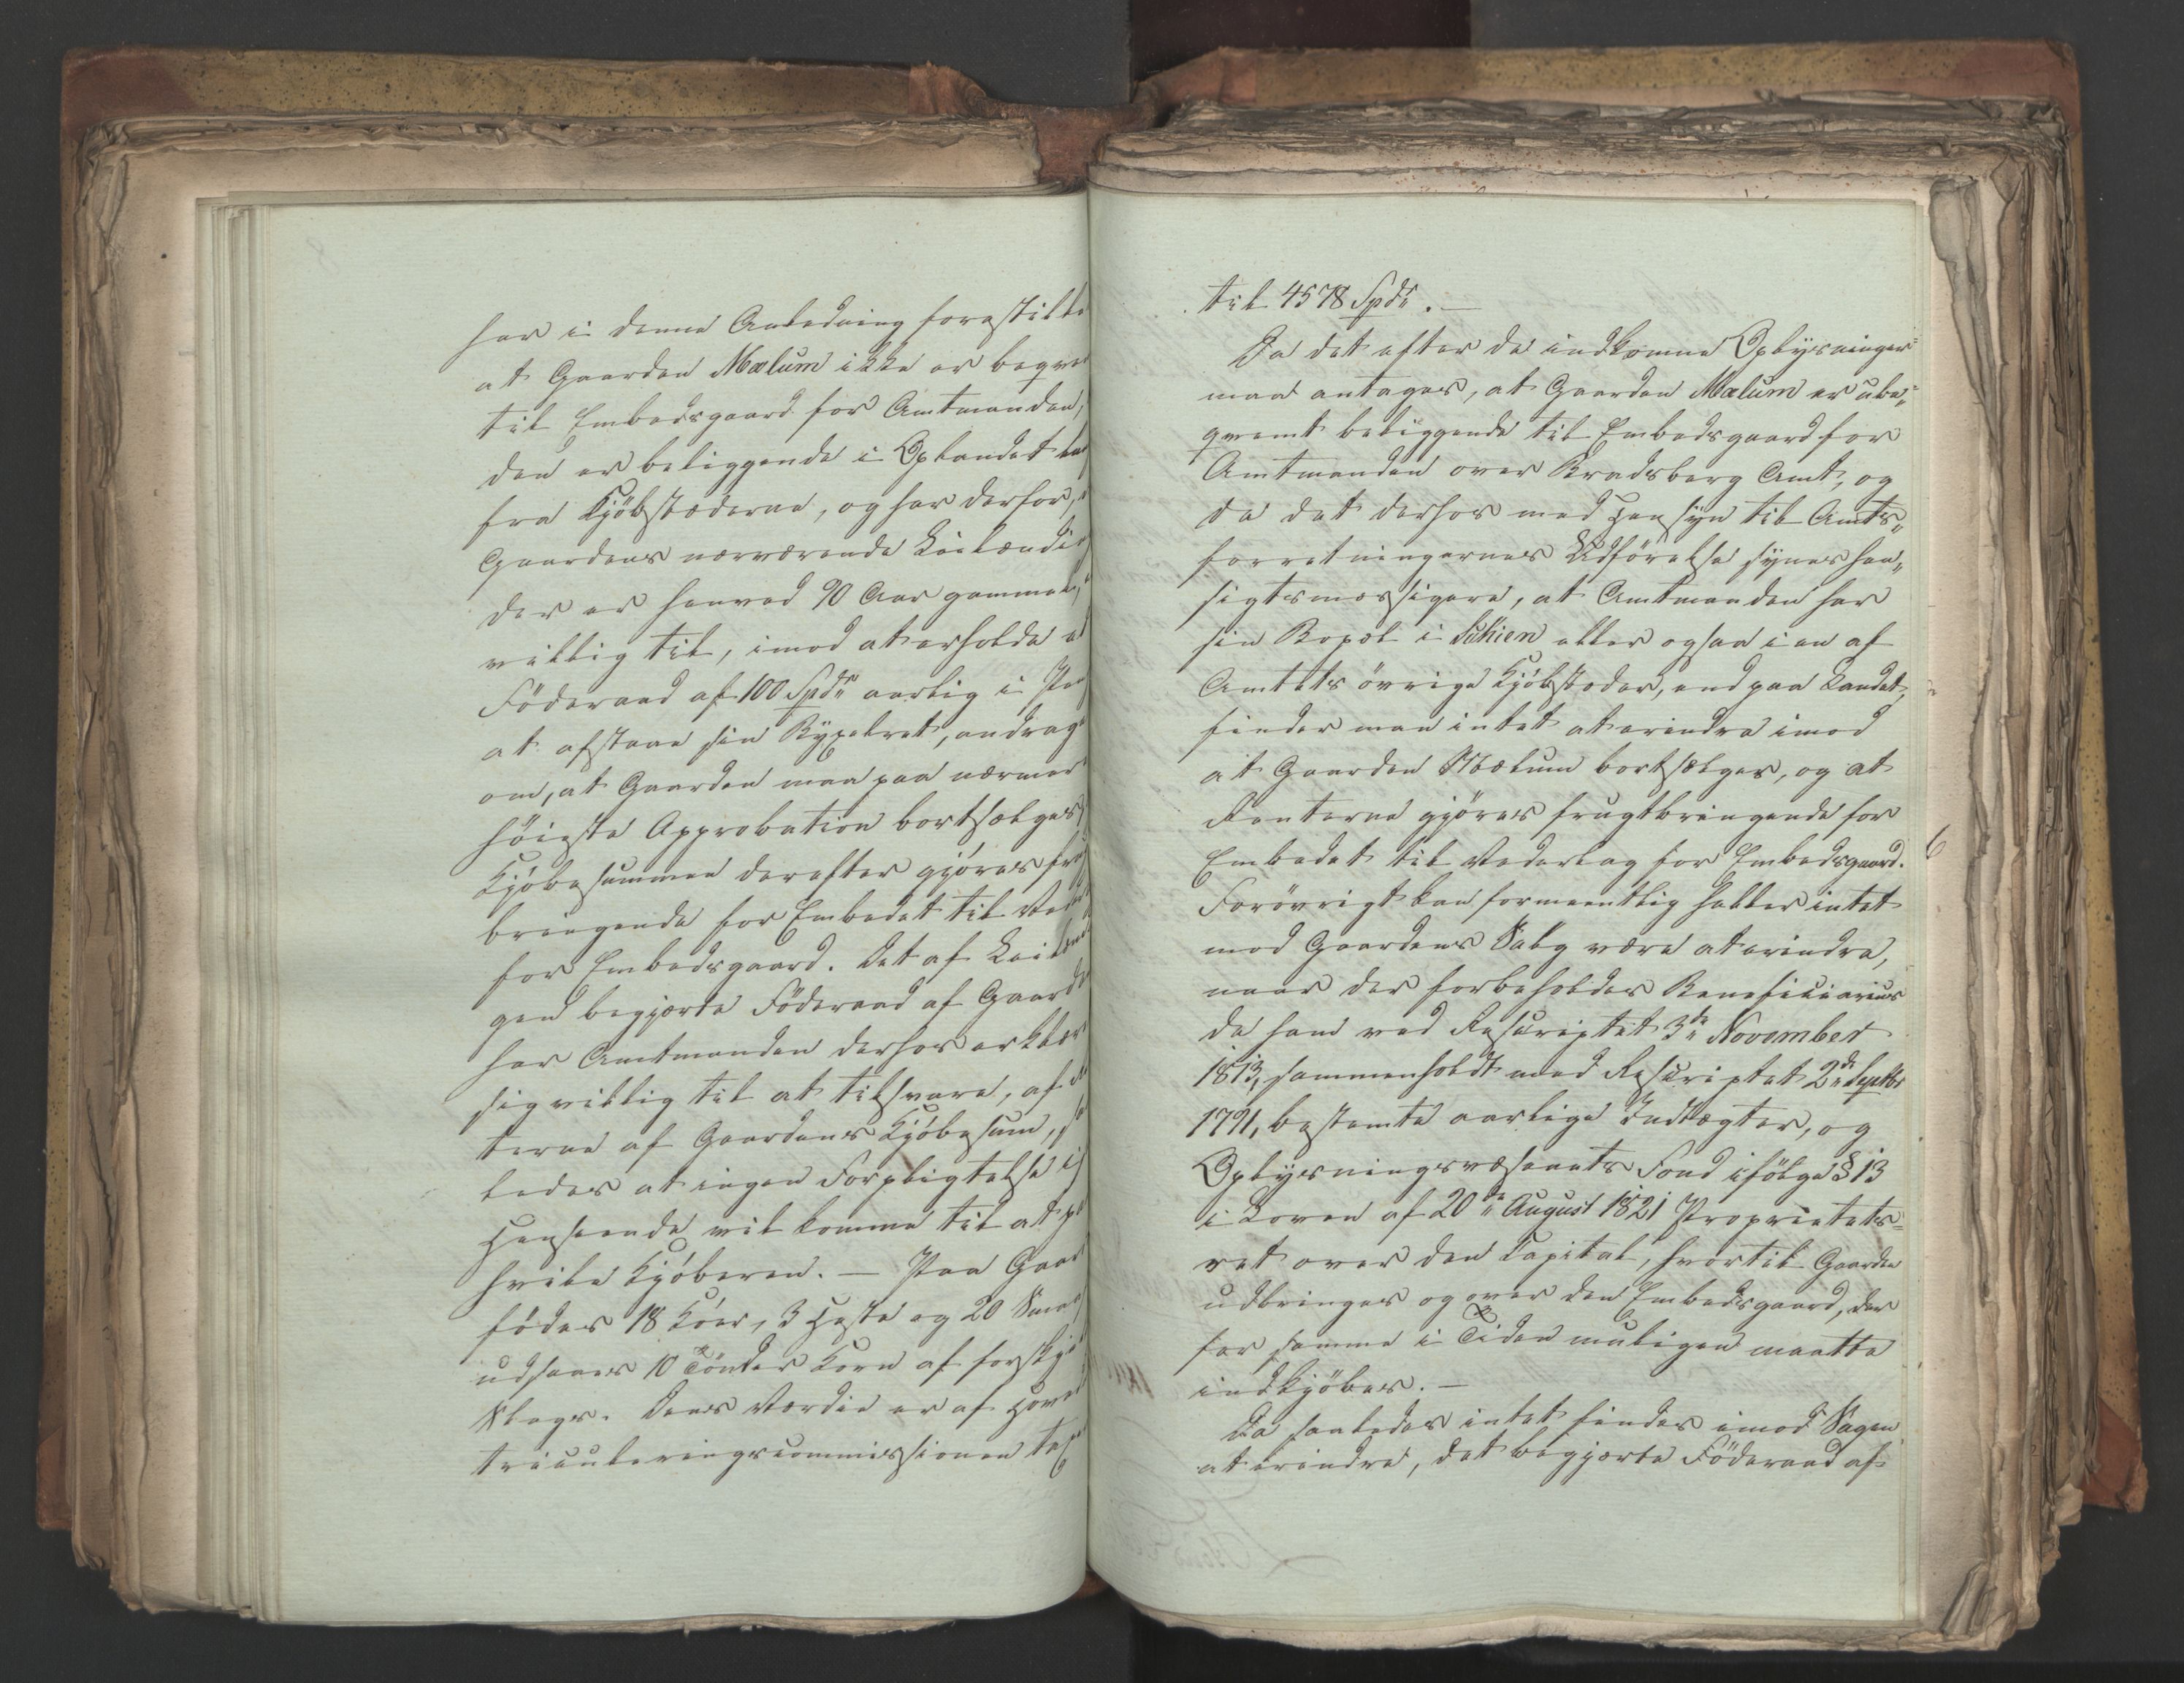 har i denne Anledning forestillet
at Gaarden Mælum ikke er beqvem
til Embedsgaard for Amtmanden,
den er beliggende i Oplandet
fra Kjöbstæderne, og har derfor,
Gaardens nærværende Leilænding
der er henved 90 Aar gammel,
villig til, imod at erholde et
Föderaad af 100 Spdr aarlig i
at afstaae sin Bygselret, andraget
om, at Gaarden maa paa nærmere
höieste Approbation bortsælges
Kjöbesummen derefter gjöres frugt
bringende for Embedet til
for Embedsgaard. Det af Leilændin
gen begjærte Föderaad af Gaarden
har Amtmanden derhos erklæret
sig villig til at tilsvare, af Ren
terne af Gaardens Kjöbesum, saa
ledes at ingen Forpligtelse i
Henseende vil komme til at paa
hvile Kjöberen. — Paa Gaarden
födes 18 Köer, 3 Heste og 20
udsaaes 10 Tönder Korn af forskjel
Slags. Dens Værdie er af
triculeringscommissionen
til 4578 Spdr. —
Da det efter de indkomne Oplysninger
maa antages, at Gaarden Mælum er ube„
qvemt beliggende til Embedsgaard for
Amtmanden over Bradsberg Amt, og
da det derhos med Hensyn til Amts„
forretningernes Udförelse synes hen„
sigtsmæssigere, at Amtmanden har
sin Bopæl i Schien eller ogsaa i en af
Amtets övrige Kjöbstæder, end paa Landet,
finder man intet at erindre imod
at Gaarden Mælum bortsælges, og at
Renterne gjöres frugtbringende for
Embedet til Vederlag for Embedsgaard.
Forövrigt kan formeentlig heller intet
mod Gaardens Salg være at erindre,
naar der forbeholdes Beneficiarius
de ham ved Rescriptet 3de November
1813, sammenholdt med Rescriptet 2de Septbr
1791, bestemte aarlige Indtægter, og
Oplysningsvæsenets Fond ifölge § 13
i Loven af 20de August 1821 Proprietets„
ret over den Capital, hvortil Gaarden
udbringes og over den Embedsgaard, der
for samme i Tiden muligen maatte
indkjöbes. —
Da saaledes intet findes imod Sagen
at erindre, det begjærte Föderaad af